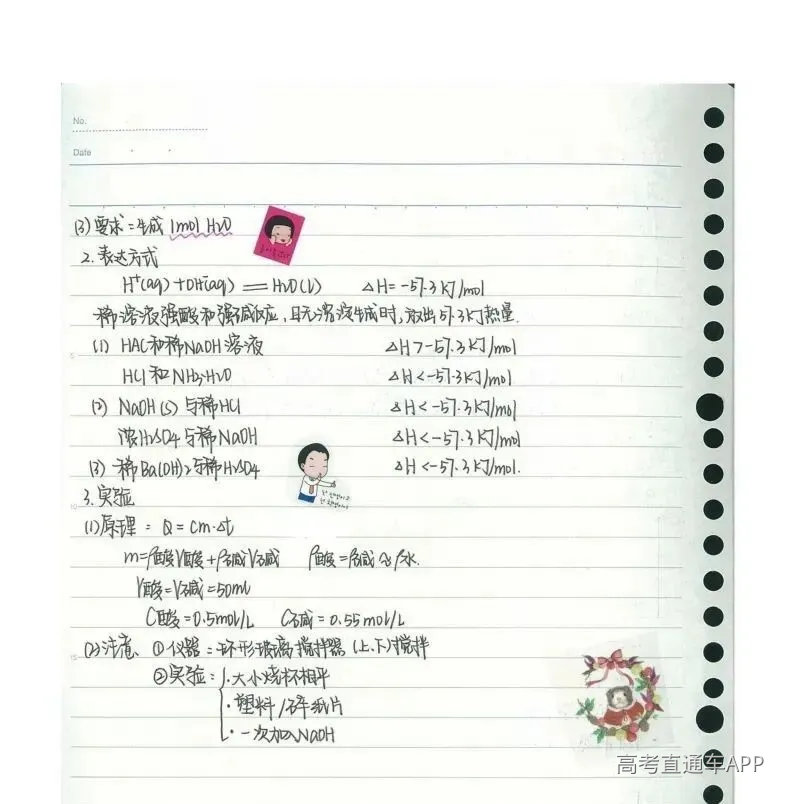 No.
Date
(3) 要求: 生成 1mol H₂O
2. 表达方式
H⁺(aq) + OH⁻(aq) == H₂O(l)  △H = -57.3 kJ/mol
稀溶液强酸和强碱反应, 且无沉淀生成时, 放出57.3kJ热量.
(1) HAC和稀NaOH溶液  △H > -57.3 kJ/mol
HCl 和 NH₃·H₂O  △H < -57.3 kJ/mol
(2) NaOH(s) 与稀HCl  △H < -57.3 kJ/mol
浓H₂SO₄与稀NaOH  △H < -57.3 kJ/mol
(3) 稀Ba(OH)₂与稀H₂SO₄  △H < -57.3 kJ/mol.
3. 实验
(1) 原理: Q = cm·△t
m = ρ酸V酸 + ρ碱V碱  ρ酸 = ρ碱 ≈ ρ水.
V酸 = V碱 = 50ml
C酸 = 0.5mol/L  C碱 = 0.55mol/L
(2) 注意、①仪器: 环形玻璃搅拌器 (上、下) 搅拌
②实验: · 大小烧杯相平
· 塑料/碎纸片
· 一次加入NaOH
5
10
15
高考直通车APP